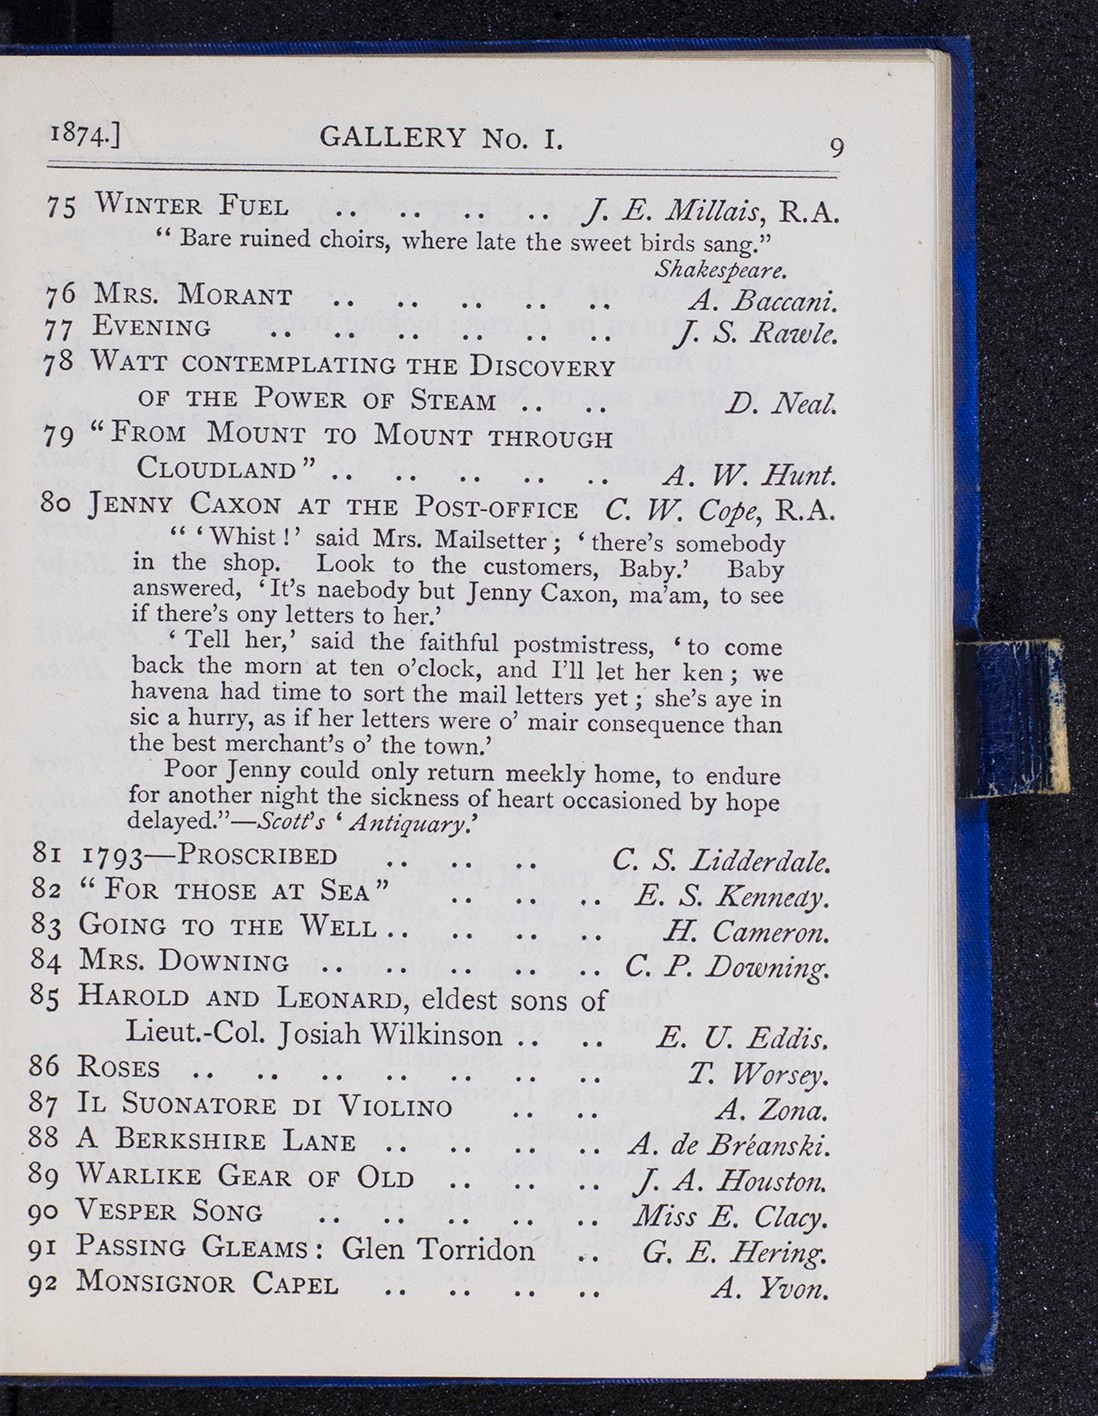 1874.] GALLERY No. I. 9
75 WINTER FUEL .. .. .. .. J. E. Millais, R.A.
“ Bare ruined choirs, where late the sweet birds sang.”
Shakespeare.
76 MRS. MORANT .. .. .. .. .. A. Baccani.
77 EVENING .. .. .. .. .. .. J. S. Rawle.
78 WATT CONTEMPLATING THE DISCOVERY
OF THE POWER OF STEAM .. .. D. Neal.
79 “FROM MOUNT TO MOUNT THROUGH
CLOUDLAND” .. .. .. .. .. A. W. Hunt.
80 JENNY CAXON AT THE POST-OFFICE C. W. Cope, R.A.
“ ‘Whist!’ said Mrs. Mailsetter; ‘there’s somebody
in the shop. Look to the customers, Baby.’ Baby
answered, ‘It’s naebody but Jenny Caxon, ma’am, to see
if there’s ony letters to her.’
‘Tell her,’ said the faithful postmistress, ‘to come
back the morn at ten o’clock, and I’ll let her ken; we
havena had time to sort the mail letters yet; she’s aye in
sic a hurry, as if her letters were o’ mair consequence than
the best merchant’s o’ the town.’
Poor Jenny could only return meekly home, to endure
for another night the sickness of heart occasioned by hope
delayed.”—Scott’s ‘Antiquary.’
81 1793—PROSCRIBED .. .. .. C. S. Lidderdale.
82 “FOR THOSE AT SEA” .. .. .. E. S. Kennedy.
83 GOING TO THE WELL .. .. .. .. H. Cameron.
84 MRS. DOWNING .. .. .. .. .. C. P. Downing.
85 HAROLD AND LEONARD, eldest sons of
Lieut.-Col. Josiah Wilkinson .. .. E. U. Eddis.
86 ROSES .. .. .. .. .. .. .. T. Worsey.
87 IL SUONATORE DI VIOLINO .. .. A. Zona.
88 A BERKSHIRE LANE .. .. .. .. A. de Bréanski.
89 WARLIKE GEAR OF OLD .. .. .. J. A. Houston.
90 VESPER SONG .. .. .. .. .. Miss E. Clacy.
91 PASSING GLEAMS: Glen Torridon .. G. E. Hering.
92 MONSIGNOR CAPEL .. .. .. .. A. Yvon.